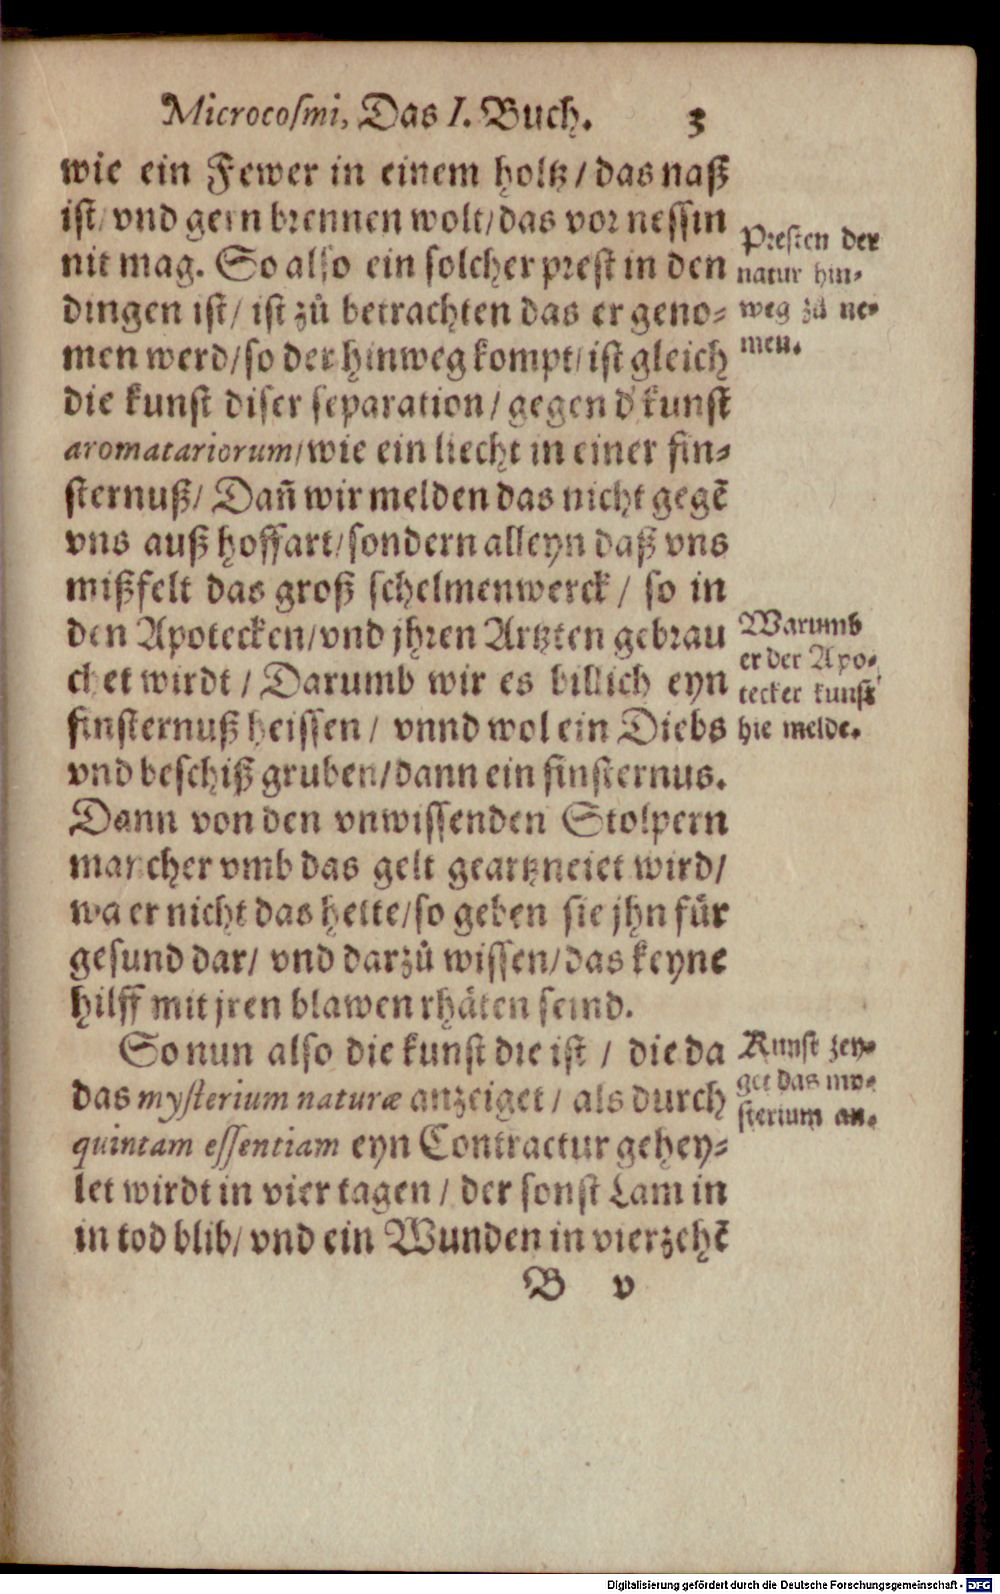 Microcosmi, Das I. Buch. 3
wie ein Fewer in einem holtz / das naß
ist / vnd gern brennen wolt / das vor nessin
nit mag. So also ein solcher prest in den
dingen ist / ist zů betrachten das er geno-
men werd / so der hinweg kompt / ist gleich
die kunst diser separation / gegen d' kunst
aromatariorum / wie ein liecht in einer fin-
sternuß / Dañ wir melden das nicht gegē
vns auß hoffart / sondern alleyn daß vns
mißfelt das groß schelmenwerck / so in
den Apotecken / vnd jhren Artzten gebrau
chet wirdt / Darumb wir es billich eyn
finsternuß heissen / vnnd wol ein Diebs
vnd beschiß gruben / dann ein finsternus.
Dann von den vnwissenden Stolpern
mancher vmb das gelt geartzneiet wird /
wa er nicht das hette / so geben sie jhn für
gesund dar / vnd darzů wissen / das keyne
hilff mit jren blawen rhäten seind.
So nun also die kunst die ist / die da
das mysterium naturæ anzeiget / als durch
quintam essentiam eyn Contractur gehey-
let wirdt in vier tagen / der sonst Lam in
in tod blib / vnd ein Wunden in vierzehē
B v
Presten der
natur hin-
weg zů ne-
men.
Warumb
er der Apo-
tecker kunst
hie melde.
Kunst zey-
get das my-
sterium an.
Digitalisierung gefördert durch die Deutsche Forschungsgemeinschaft - DFG